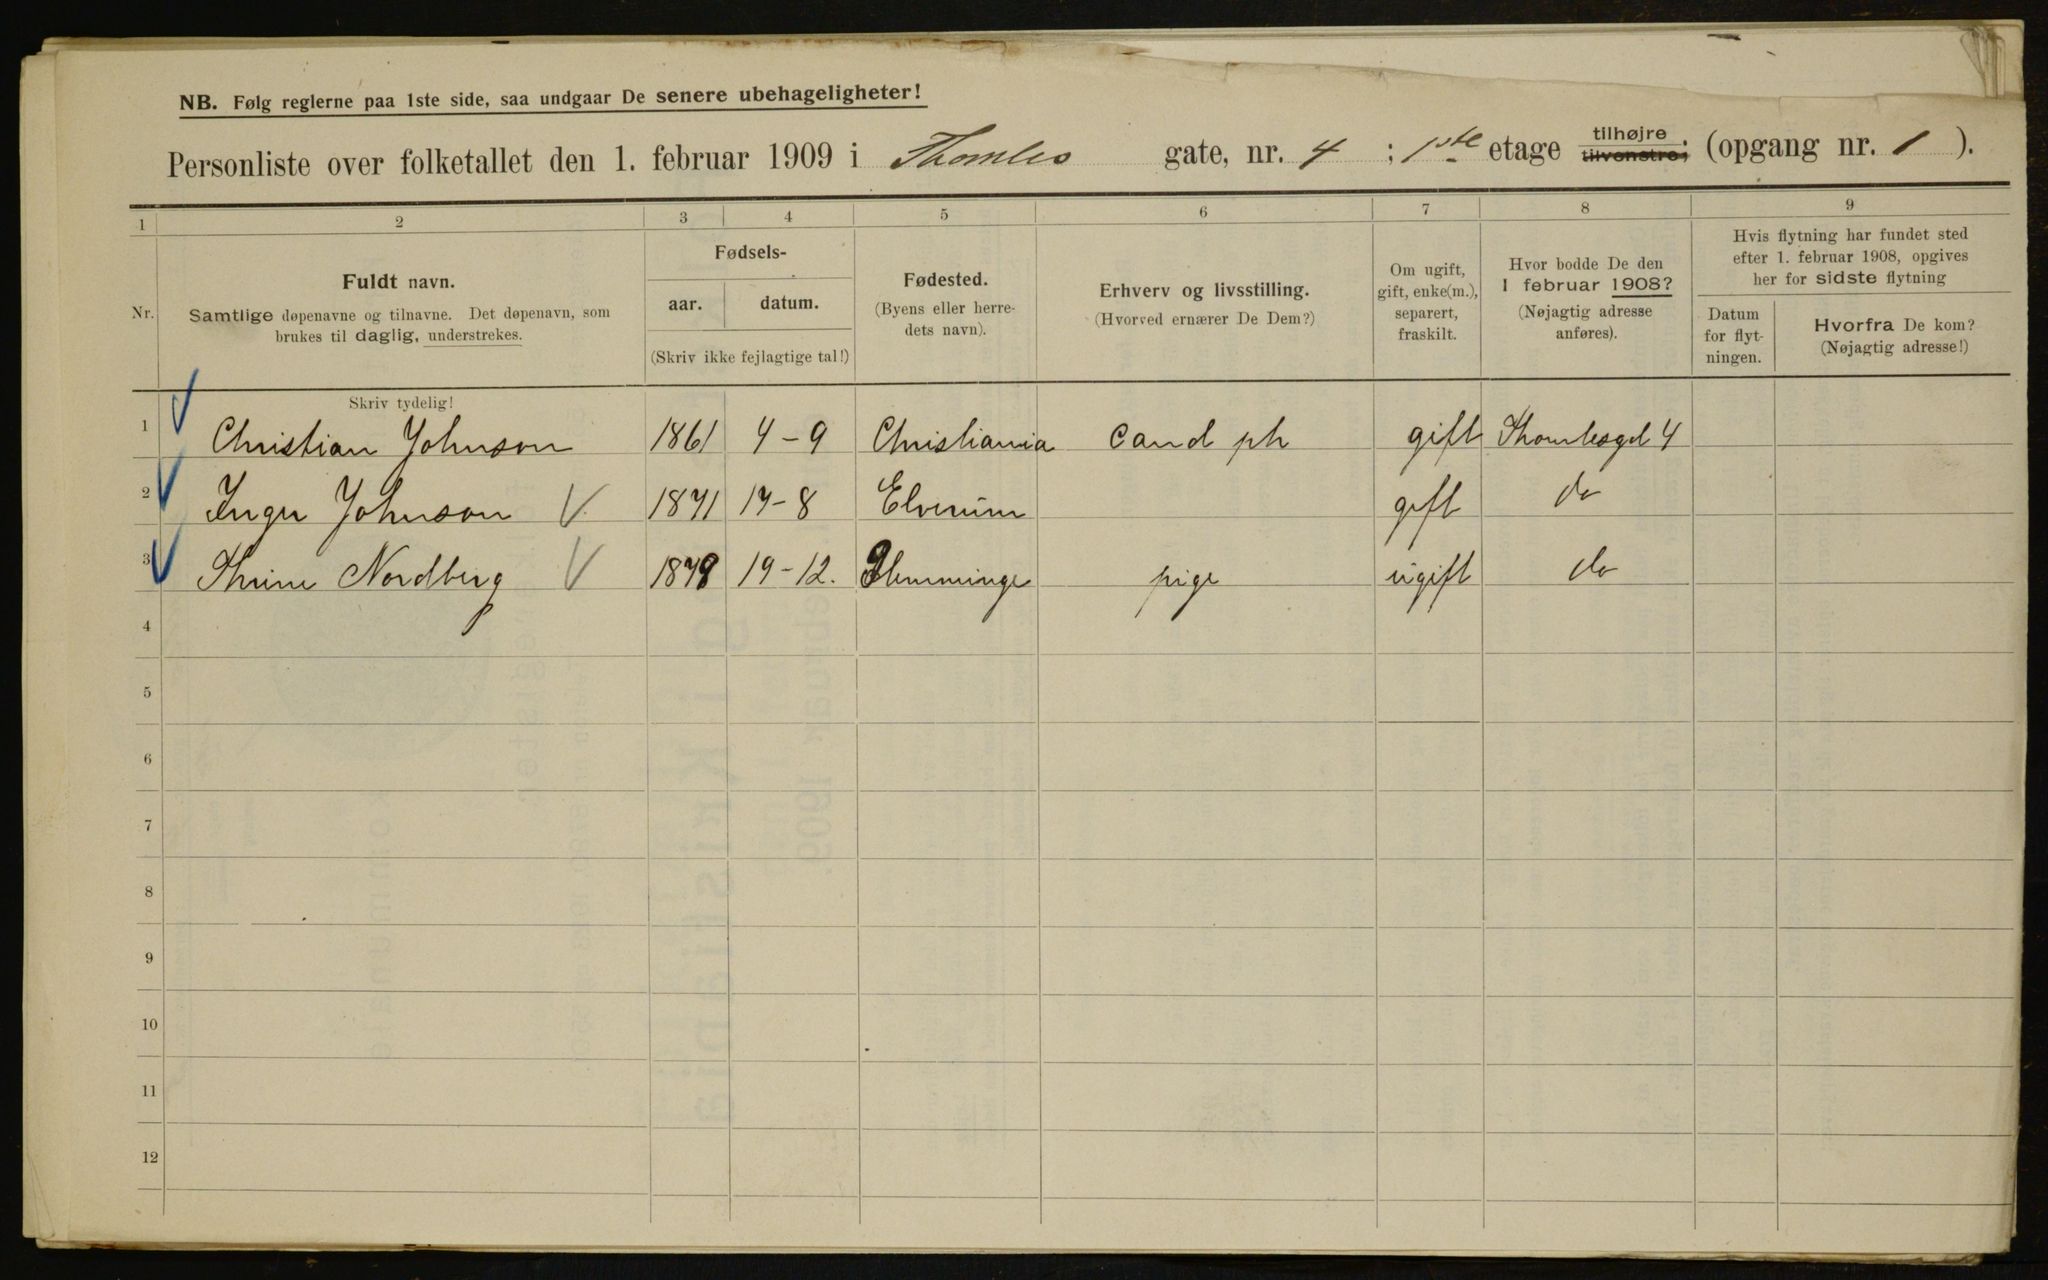 NB. Følg reglerne paa 1ste side, saa undgaar De senere ubehageligheter!
Personliste over folketallet den 1. februar 1909 i Thomles gate, nr. 4 ; 1ste etage tilhøjre tilvenstre; (opgang nr. 1 ).
1 2 3 4 5 6 7 8 9
Nr.
Fuldt navn.
Samtlige døpenavne og tilnavne. Det døpenavn, som
brukes til daglig, understrekes.
Fødsels-
aar. datum.
(Skriv ikke fejlagtige tal!)
Fødested.
(Byens eller herre-
dets navn).
Erhverv og livsstilling.
(Hvorved ernærer De Dem?)
Om ugift,
gift, enke(m.),
separert,
fraskilt.
Hvor bodde De den
1 februar 1908?
(Nøjagtig adresse
anføres).
Hvis flytning har fundet sted
efter 1. februar 1908, opgives
her for sidste flytning
Datum
for flyt-
ningen.
Hvorfra De kom?
(Nøjagtig adresse!)
Skriv tydelig!
1 Christian Johnson 1861 4-9 Christiania Cand ph gift Thomlesgd 4
2 Inger Johnson 1871 17-8 Elverum gift do
3 Thrine Nordberg 19-12. Flemminge pige ugift do
4
5
6
7
8
9
10
11
12